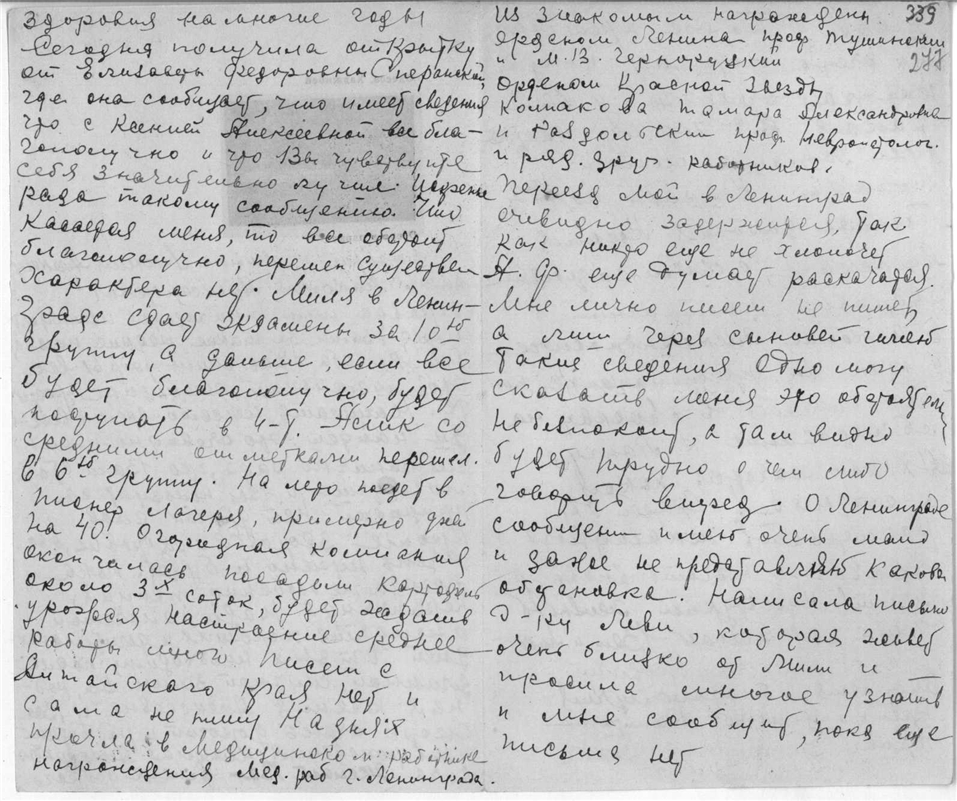 здоровия на многие годы
Сегодня получила открытку
от Елизаветы Федоровны Сперанской,
где она сообщает, что имеет сведения
что с Ксенией Алексеевной все бла-
гополучно и что Вы чувствуете
себя значительно лучше. Искренне
рада такому сообщению. Что
касается меня, то все обстоит
благополучно, перемен существен
характера нет. Миля в Ленин-
граде сдает экзамены за 10ую
группу, а дальше, если все
будет благополучно, будет
поступать в
средними отметками перешел.
в 6ую группу. На лето поедет в
пионер лагеря, примерно дней
на 40. Огородная компания
окончилась посадили картофель
около 3х соток, будет ждать
урожая настроение среднее
работы много писем с
Алтайского Края нет и
сама не пишу На днях
прочла в Медицинском работнике
награждения мед. раб г. Ленинграда.
339
277
из знакомых награжден
орденом Ленина проф Тушинский
и М. В. Черноруцкий
орденом Красной Звезды
Колпакова Тамара Александровна
и Раздольский проф Невропатолог.
и ряд. друг. работников.
Переезд мой в Ленинград
очевидно задержится, так
как никто еще не хлопочет
А. Ф. еще думает раскачаться.
Мне лично писем не пишет,
а лиш через сыновей имею
такие сведения Одно могу
сказать меня это обстоятельс
не беспокоит, а там видно
будет трудно о чем либо
говорить вперед. О Ленинграде
сообщений имею очень мало
и даже не представляю какова
обстановка. Написала письмо
Д-ру Леви, которая живет
очень близко от Мили и
просила многое узнать
и мне сообщит, пока еще
письма нет